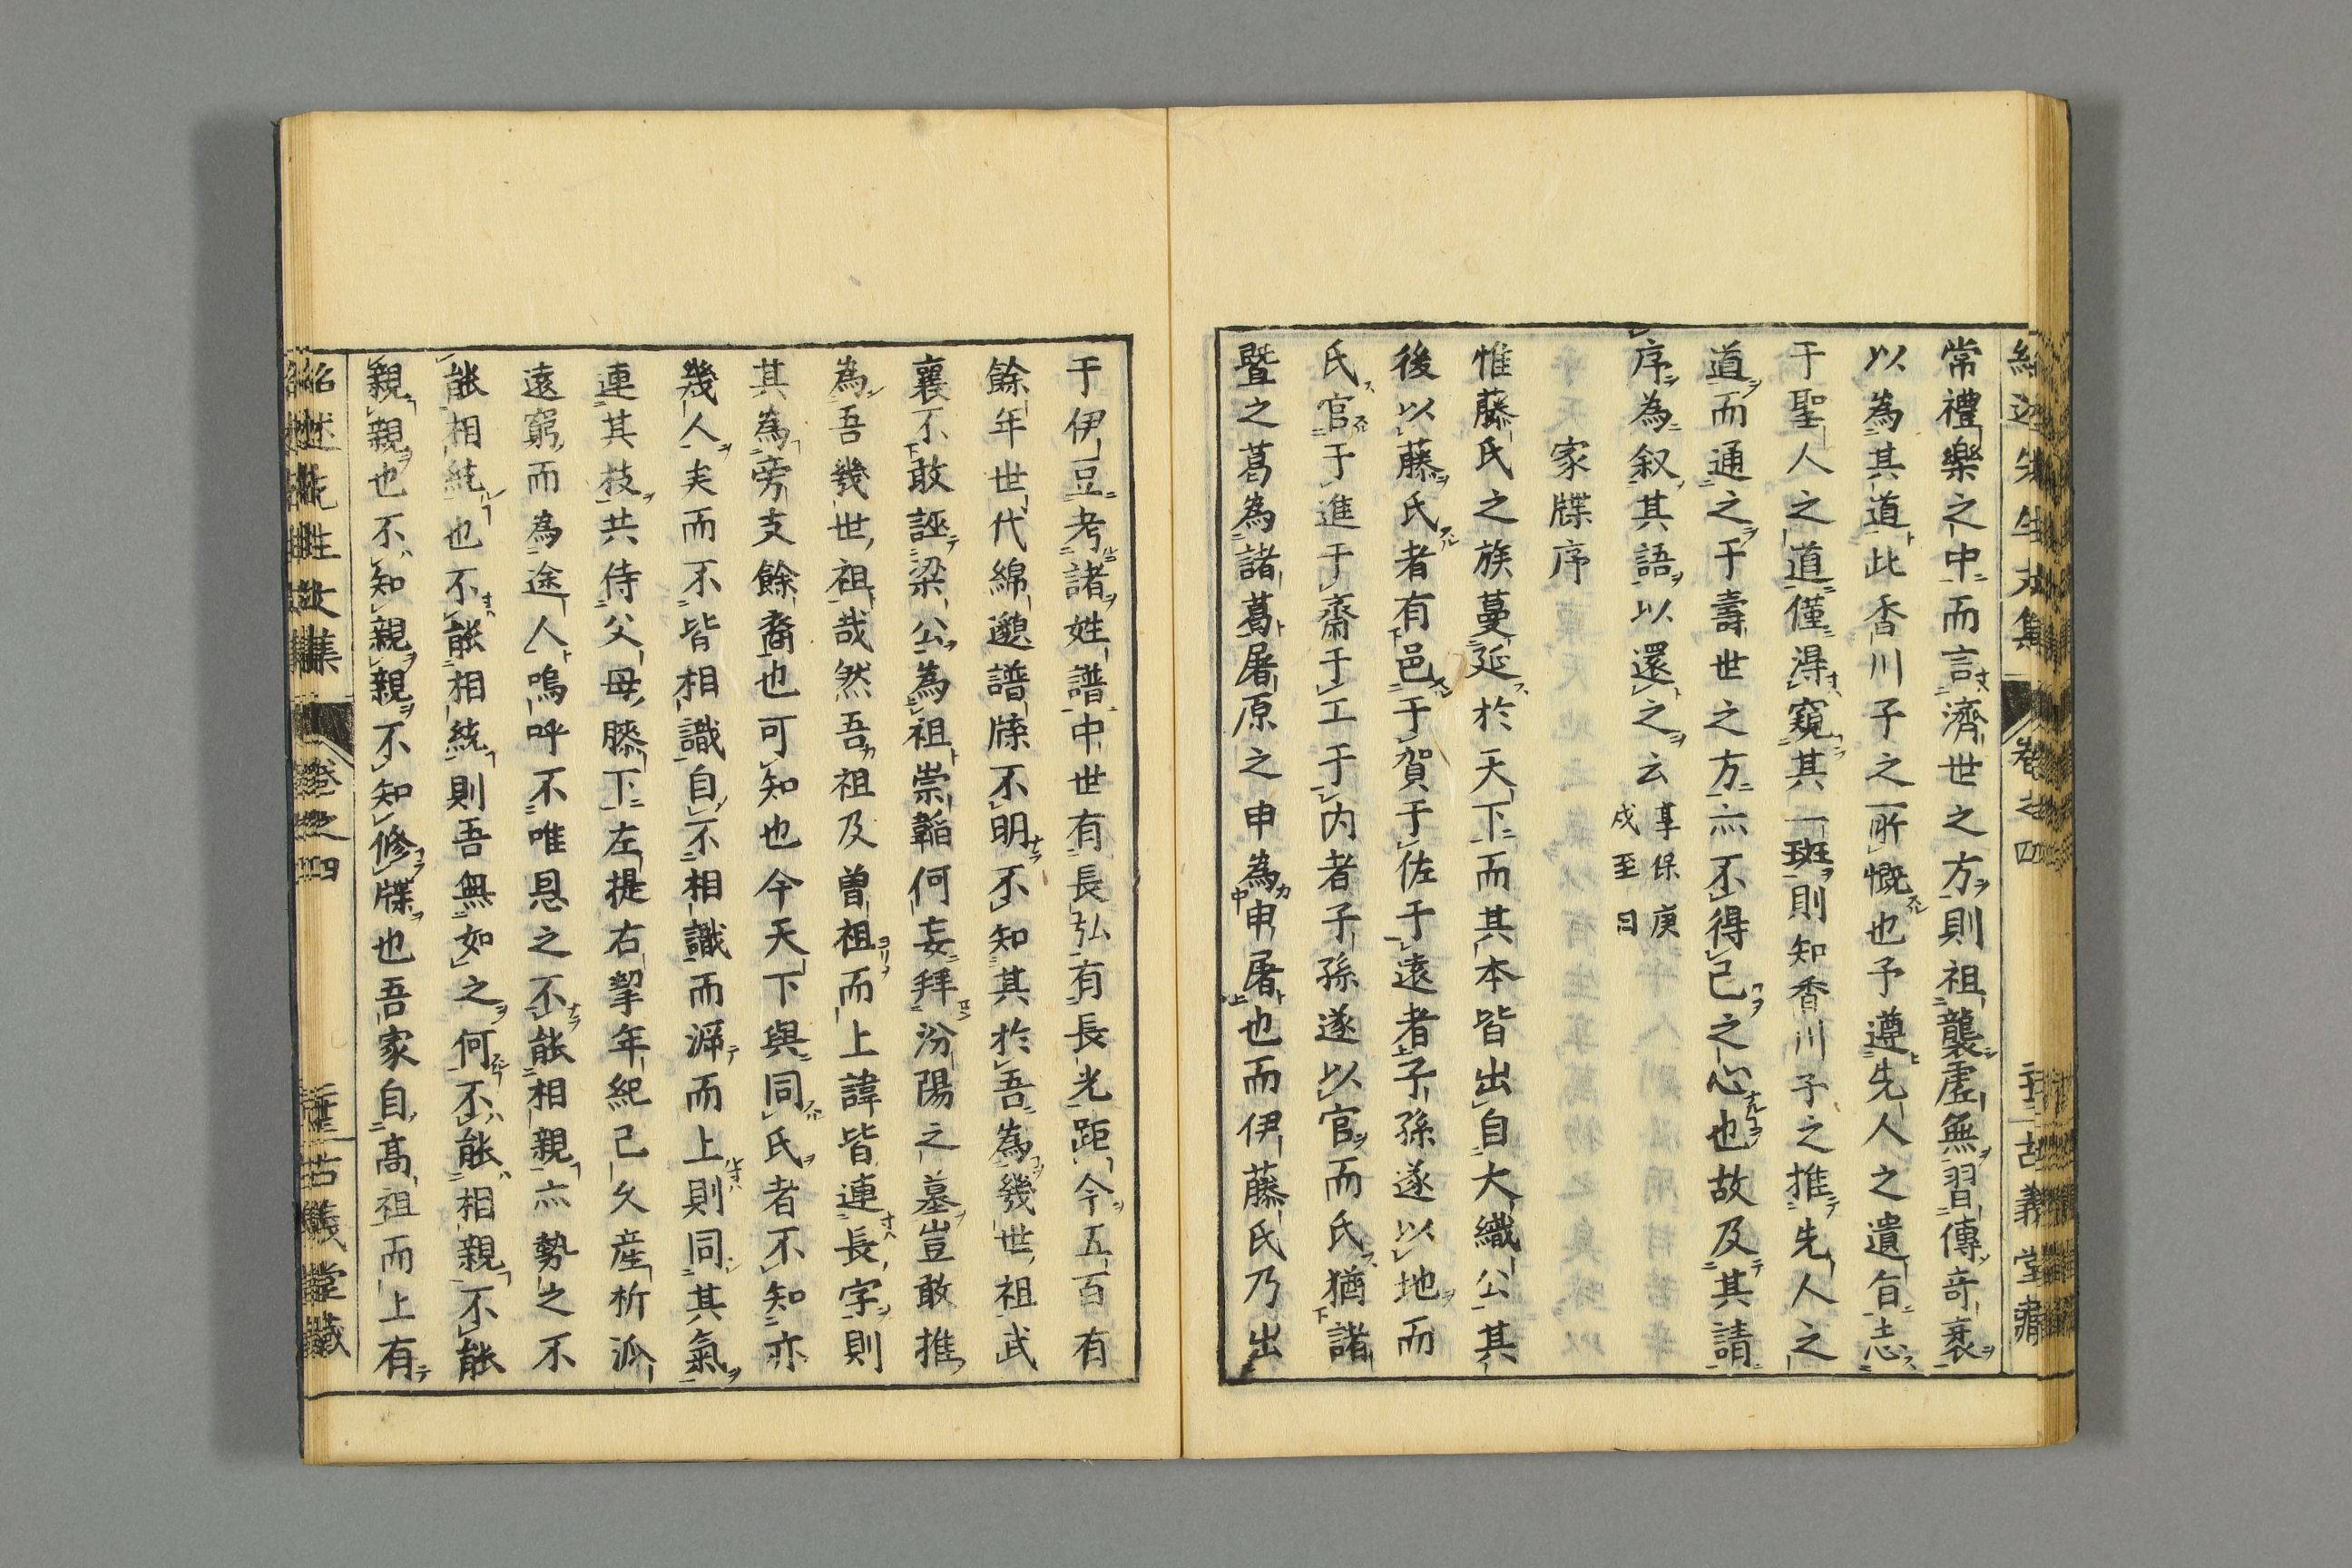 常禮樂之中而言濟世之方則祖襲虛無習傳竒袤
以為其道此香川子之所慨也予遵先人之遺旨志
于聖人之道僅淂窺其一斑則知香川子之推先人之
道而通之于壽世之方亦不得已之心也故及其請
序為叙其語以還之云享保庚戌至日
家牒序
惟藤氏之族蔓延於天下而其本皆出自大織公其
後以藤氏者有邑于賀于佐于遠者子孫遂以地而
氏官于進于齋于工于内者子孫遂以官而氏猶諸
曁之葛為諸葛屠原之申為申屠也而伊藤氏乃出
于伊豆考諸姓譜中世有長弘有長光距今五百有
餘年世代綿邈譜牒不明不知其於吾為幾世祖武
襄不敢誣梁公為祖崇韜何妄拜汾陽之墓豈敢推
為吾幾世祖哉然吾祖及曽祖而上諱皆連長字則
其為旁支餘裔也可知也今天下與同氏者不知亦
幾人矣而不皆相識自不相識而泝而上則同其氣
連其枝共侍父母膝下左提右挈年紀已久産析派
遠窮而為途人嗚呼不唯恩之不能相親亦勢之不
能相統也不能相統則吾無如之何不能相親不能
親親也不知親親不知修牒也吾家自髙祖而上有
紹述先生文集
卷之四
古義堂藏